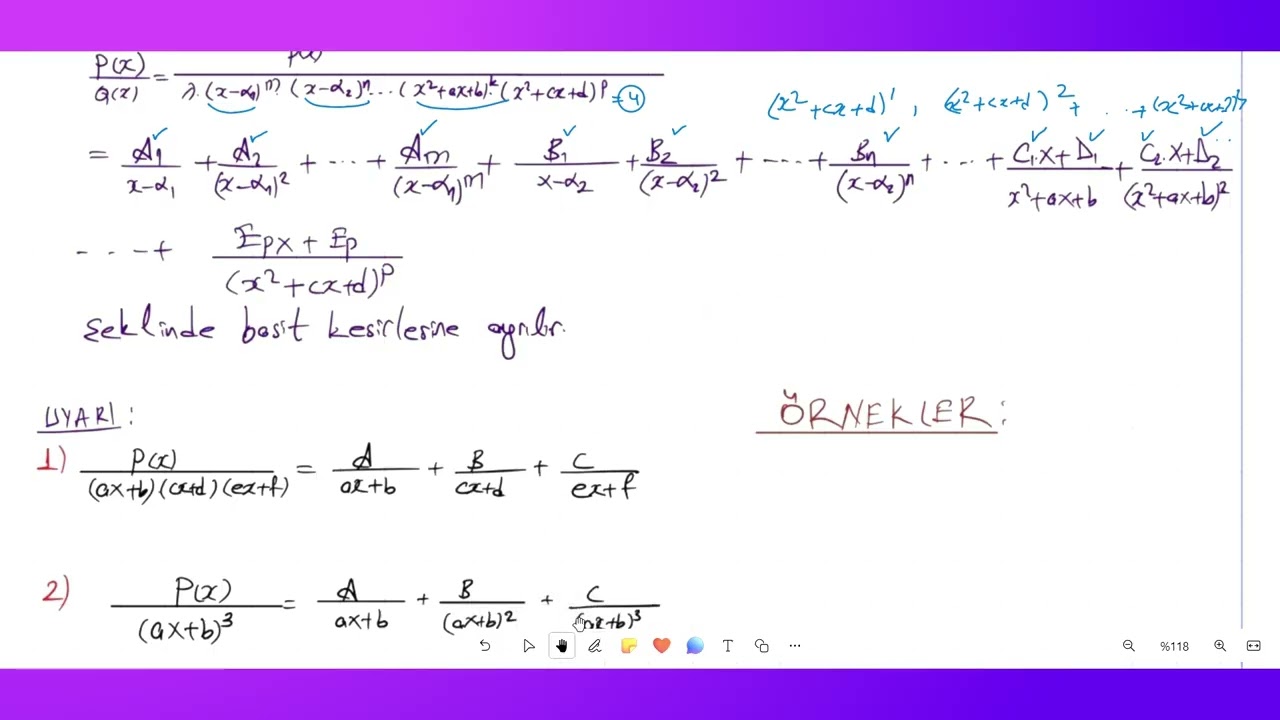 P(x)/Q(x) = P(x)/λ.(x-α₁)ᵐ.(x-α₂)ⁿ...(x²+ax+b)ᵏ.(x²+cx+d)ᵖ = 4
(x²+cx+d)¹, (x²+cx+d)² + ... + (x²+cx+d)⁴
= A₁/(x-α₁) + A₂/(x-α₁)² + ... + Aₘ/(x-α₁)ᵐ + B₁/(x-α₂) + B₂/(x-α₂)² + ... + Bₙ/(x-α₂)ⁿ + ... + (C₁.x+D₁)/(x²+ax+b) + (C₂.x+D₂)/(x²+ax+b)² ...
... + (Eₚx + Eₚ)/(x²+cx+d)ᵖ
şeklinde basit kesirlerine ayrılır.
UYARI:
ÖRNEKLER:
1) P(x)/(ax+b)(cx+d)(ex+f) = A/(ax+b) + B/(cx+d) + C/(ex+f)
2) P(x)/(ax+b)³ = A/(ax+b) + B/(ax+b)² + C/(ax+b)³
T
%118